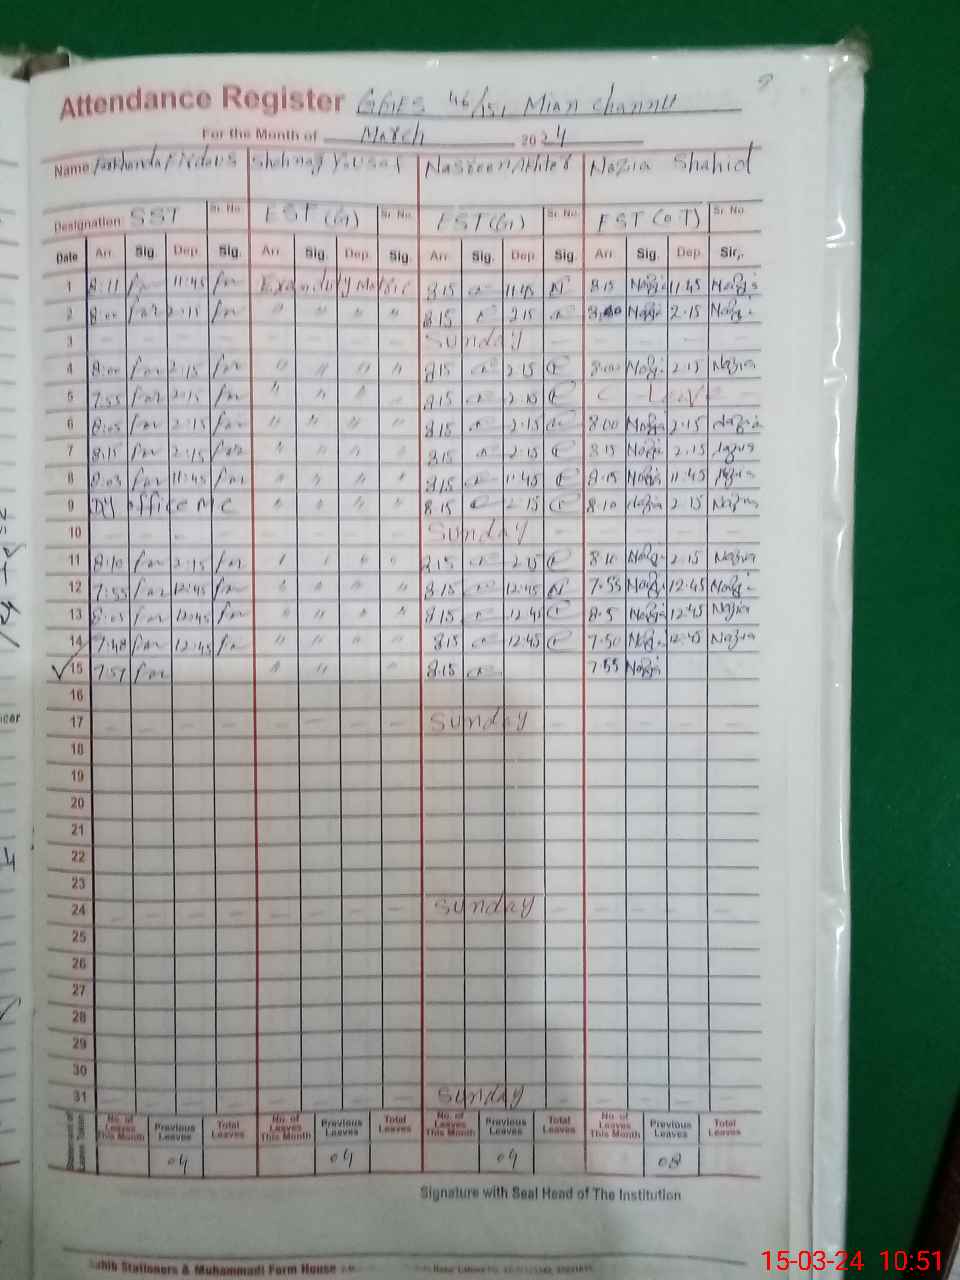 Attendance Register GGES 46/15L Mian Channu
For the Month of March 2024
Name Farkhanda Firdous Shehnaz Yousaf Nasreen Akhter Nazia Shahid
Designation SST Sr. No. EST (G) Sr. No. EST (G) Sr. No. EST (O T) Sr. No.
Date Arr. Sig. Dep. Sig. Arr. Sig. Dep. Sig. Arr. Sig. Dep. Sig. Arr. Sig. Dep. Sir,.
1 8:11 far 11:45 far Exam duty Matric 8.15 11.45 8.15 Nazia 11.45 Nazia
2 8:00 far 2:15 far " " " " 8.15 2.15 Nazia 2.15 Nazia
3 – – – – – – – – Sunday – – – – –
4 8:00 far 2:15 far " " " " 8.15 2.15 8:00 Nazia 2.15 Nazia
5 7:55 far 2:15 far " " " " 8.15 2.15 C – Leave –
6 8:05 far 2:15 far " " " " 8.15 2.15 8.00 Nazia 2.15 Nazia
7 8:15 far 2:15 far " " " " 8.15 2.15 8.15 Nazia 2.15 Nazia
8 8:03 far 11:45 far " " " " 8.15 11.45 8.15 Nazia 11.45 Nazia
9 Dy office MC " " " " 8.15 2.15 8.10 Nazia 2.15 Nazia
10 – – – – – – – Sunday – – – – –
11 8:10 far 2:15 far " " " " 8.15 2.15 8.10 Nazia 2.15 Nazia
12 7:55 far 12:45 far " " " " 8.15 12.45 7.55 Nazia 12.45 Nazia
13 8:05 far 12:45 far " " " " 8.15 12.45 8.5 Nazia 12.45 Nazia
14 7:48 far 12:45 far " " " " 8.15 12.45 7.50 Nazia 12.45 Nazia
15 7:57 far " " " 8.15 7.55 Nazia
16
17 – – – – – – – – Sunday – – – – –
18
19
20
21
22
23
24 – – – – – – – – Sunday – – – – –
25
26
27
28
29
30
31 – – – – – – – – Sunday – – – – –
Statement of Leave Taken No. of Leaves This Month Previous Leaves Total Leaves No. of Leaves This Month Previous Leaves Total Leaves No. of Leaves This Month Previous Leaves Total Leaves No. of Leaves This Month Previous Leaves Total Leaves
04 04 04 08
Signature with Seal Head of The Institution
Sahib Stationers & Muhammadi Form House
15-03-24 10:51